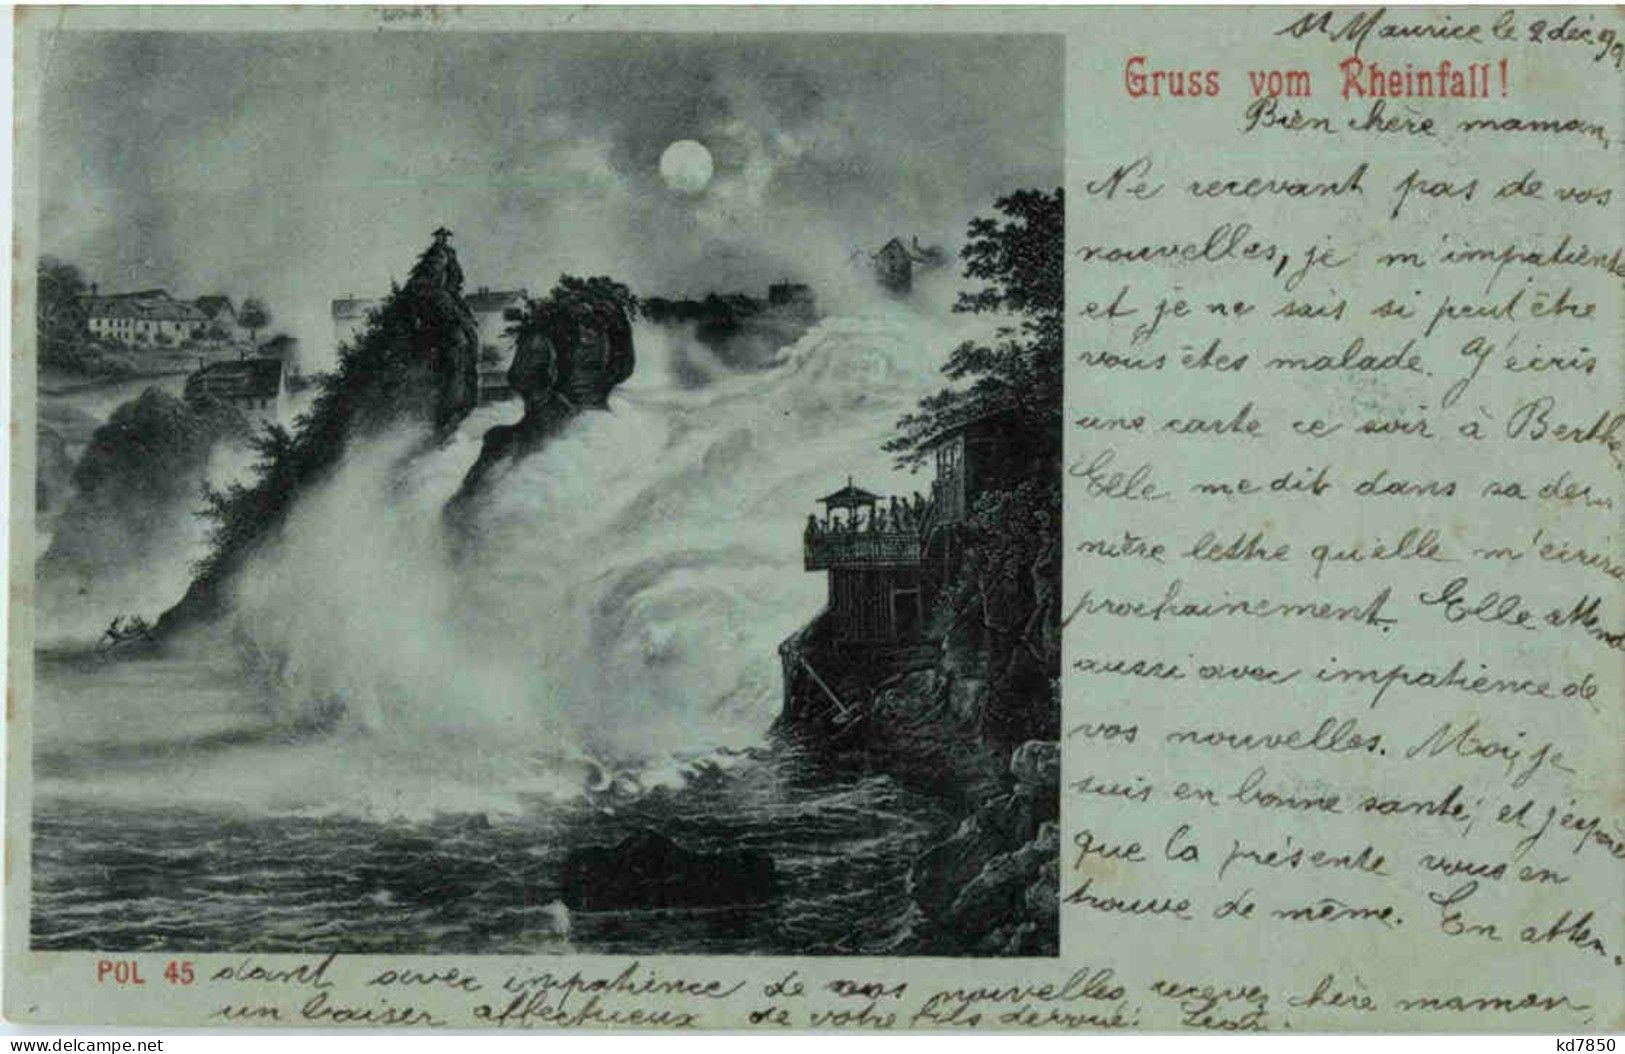 St Maurice le 2 déc. 99
Gruss vom Rheinfall!
Bien chère maman,
Ne recevant pas de vos
nouvelles, je m'impatiente
et je ne sais si peut être
vous êtes malade. J'écris
une carte ce soir à Berthe.
Elle me dit dans sa der-
nière lettre qu'elle m'écrira
prochainement. Elle attend
aussi avec impatience de
vos nouvelles. Moi, je
suis en bonne santé; et j'espère
que la présente vous en
trouve de même. En atten-
POL 45
dant avec impatience de vos nouvelles, recevez chère maman,
un baiser affectueux de votre fils dévoué:
kd7850